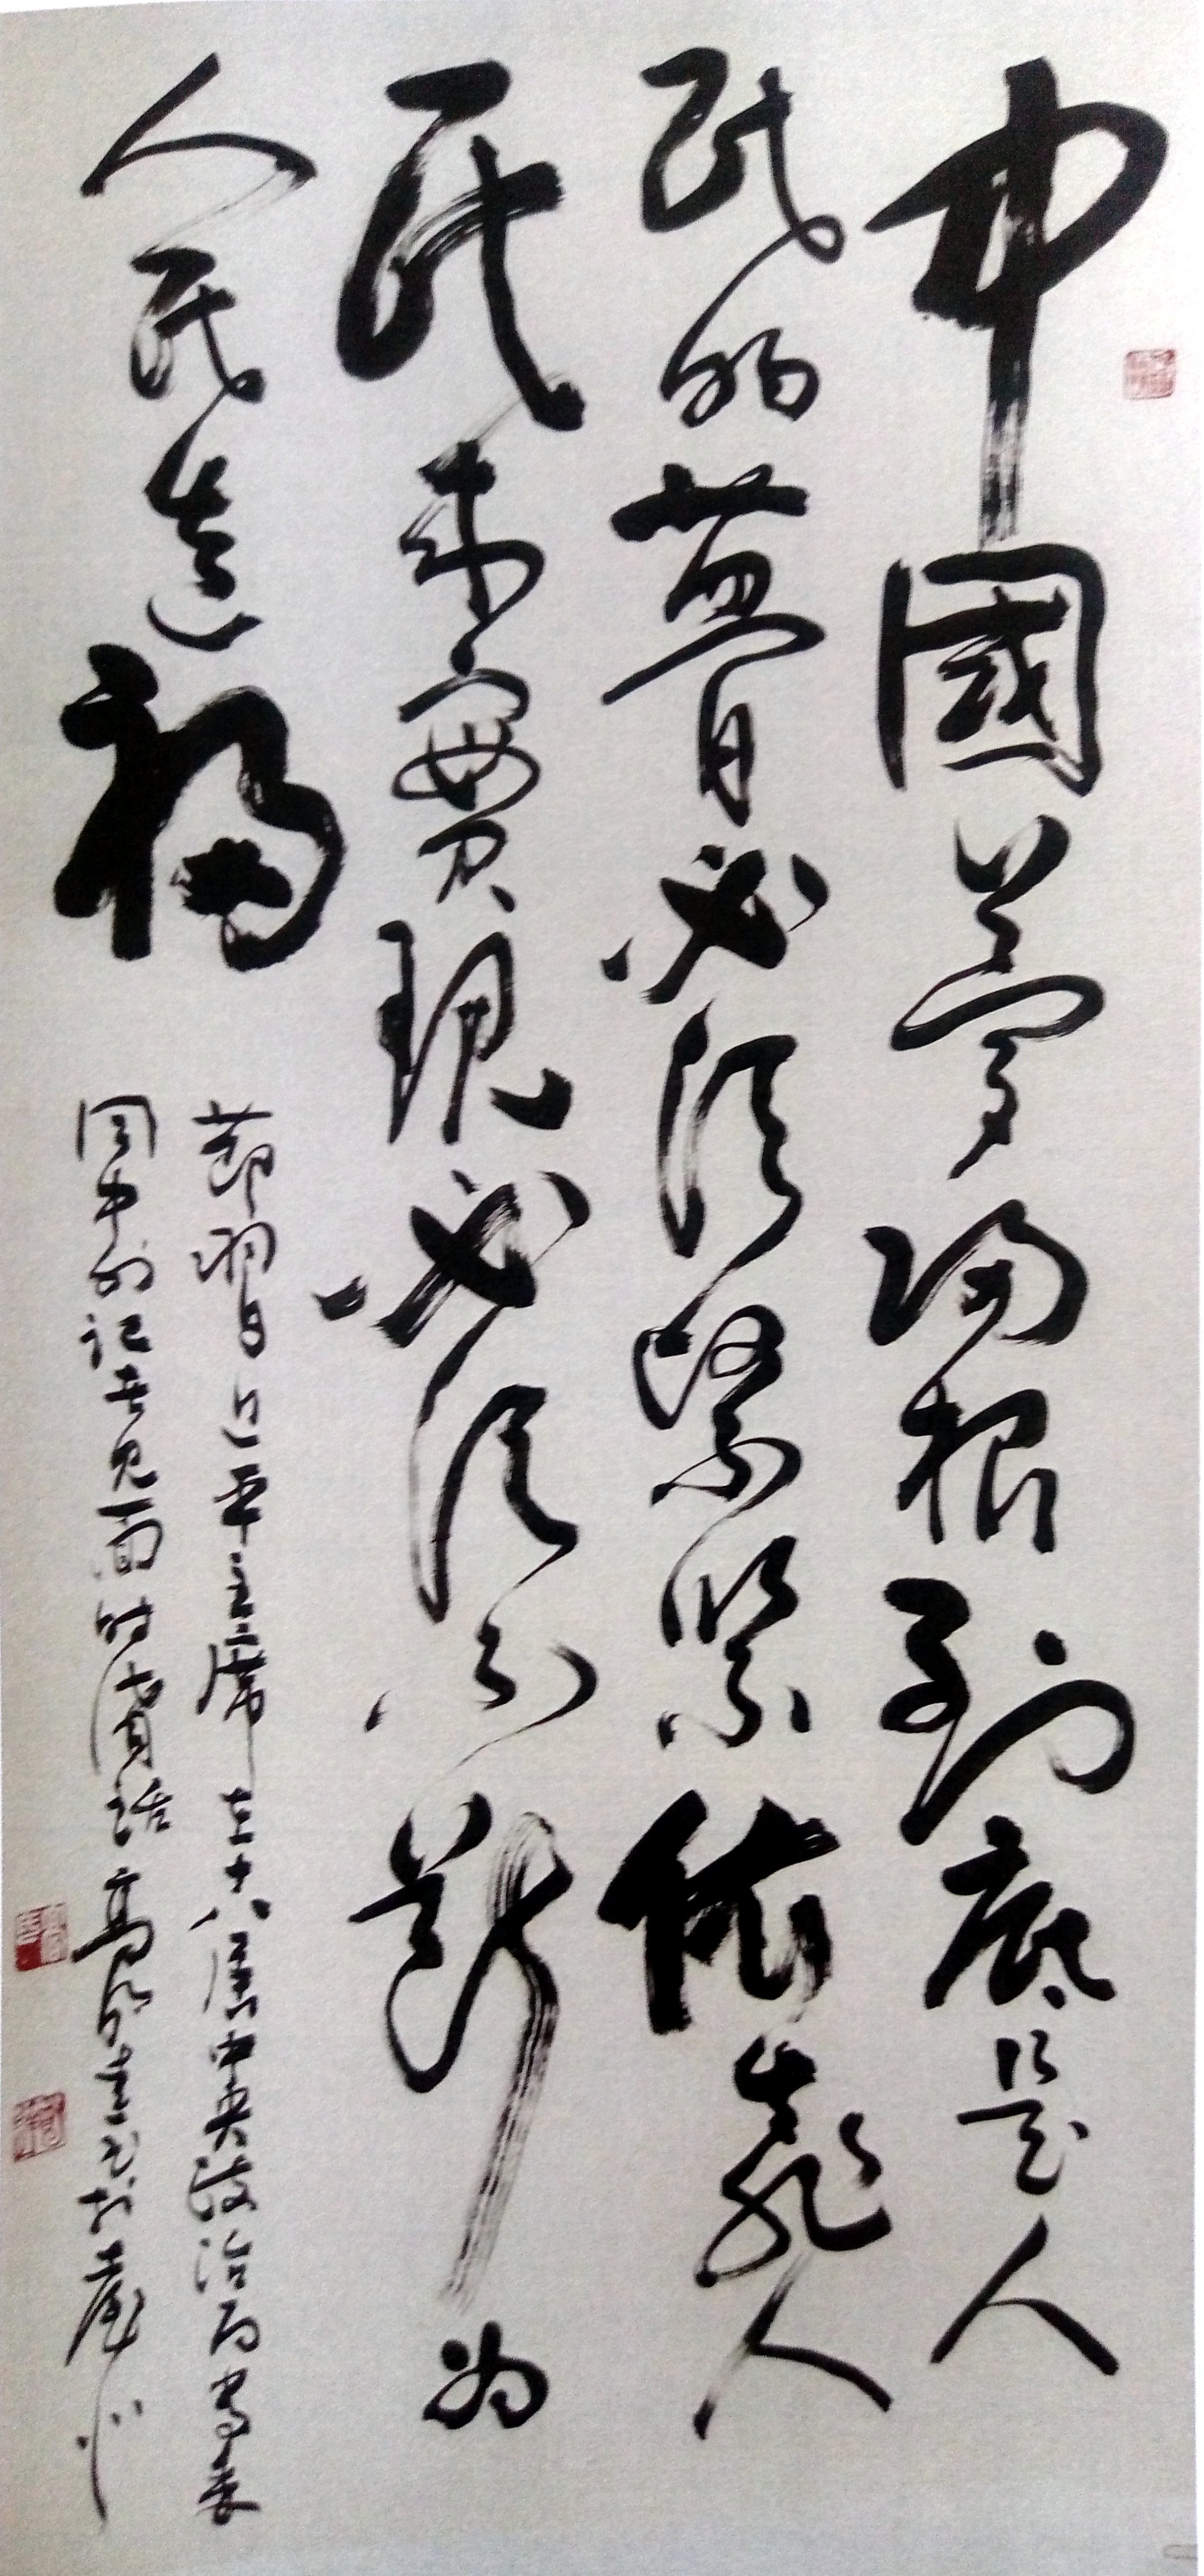 中國夢歸根到底是人
民的夢必須緊緊依靠人
民來實現必須不斷為
人民造福
節習近平主席在十八屆中央政治局常委
同中外記者見面時講話高